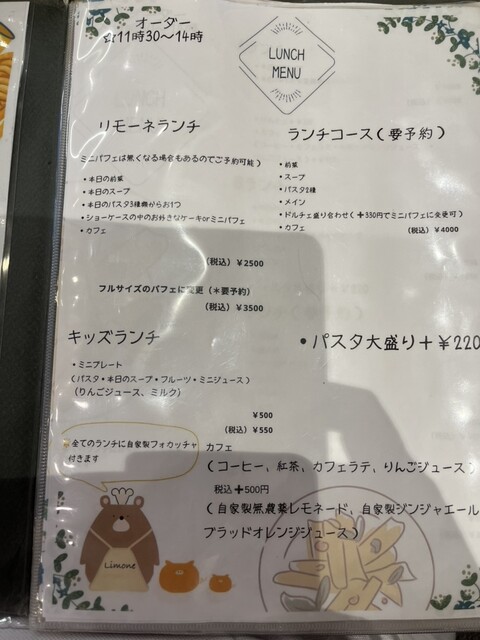 オーダー
11時30〜14時
LUNCH
MENU
リモーネランチ
ミニパフェは無くなる場合もあるのでご予約可能)
・本日の前菜
・本日のスープ
・本日のパスタ3種類からお1つ
・ショーケースの中のお好きなケーキorミニパフェ
・カフェ
(税込)¥2500
フルサイズのパフェに変更(*要予約)
(税込)¥3500
ランチコース(要予約)
・前菜
・スープ
・パスタ2種
・メイン
・ドルチェ盛り合わせ(+330円でミニパフェに変更可)
・カフェ
(税込)¥4000
キッズランチ
・ミニプレート
(パスタ・本日のスープ・フルーツ・ミニジュース)
(りんごジュース、ミルク)
¥500
(税込)¥550
・パスタ大盛り+¥220
全てのランチに自家製フォカッチャ
付きます
カフェ
(コーヒー、紅茶、カフェラテ、りんごジュース)
税込+500円
(自家製無農薬レモネード、自家製ジンジャエール
ブラッドオレンジジュース)
Limone